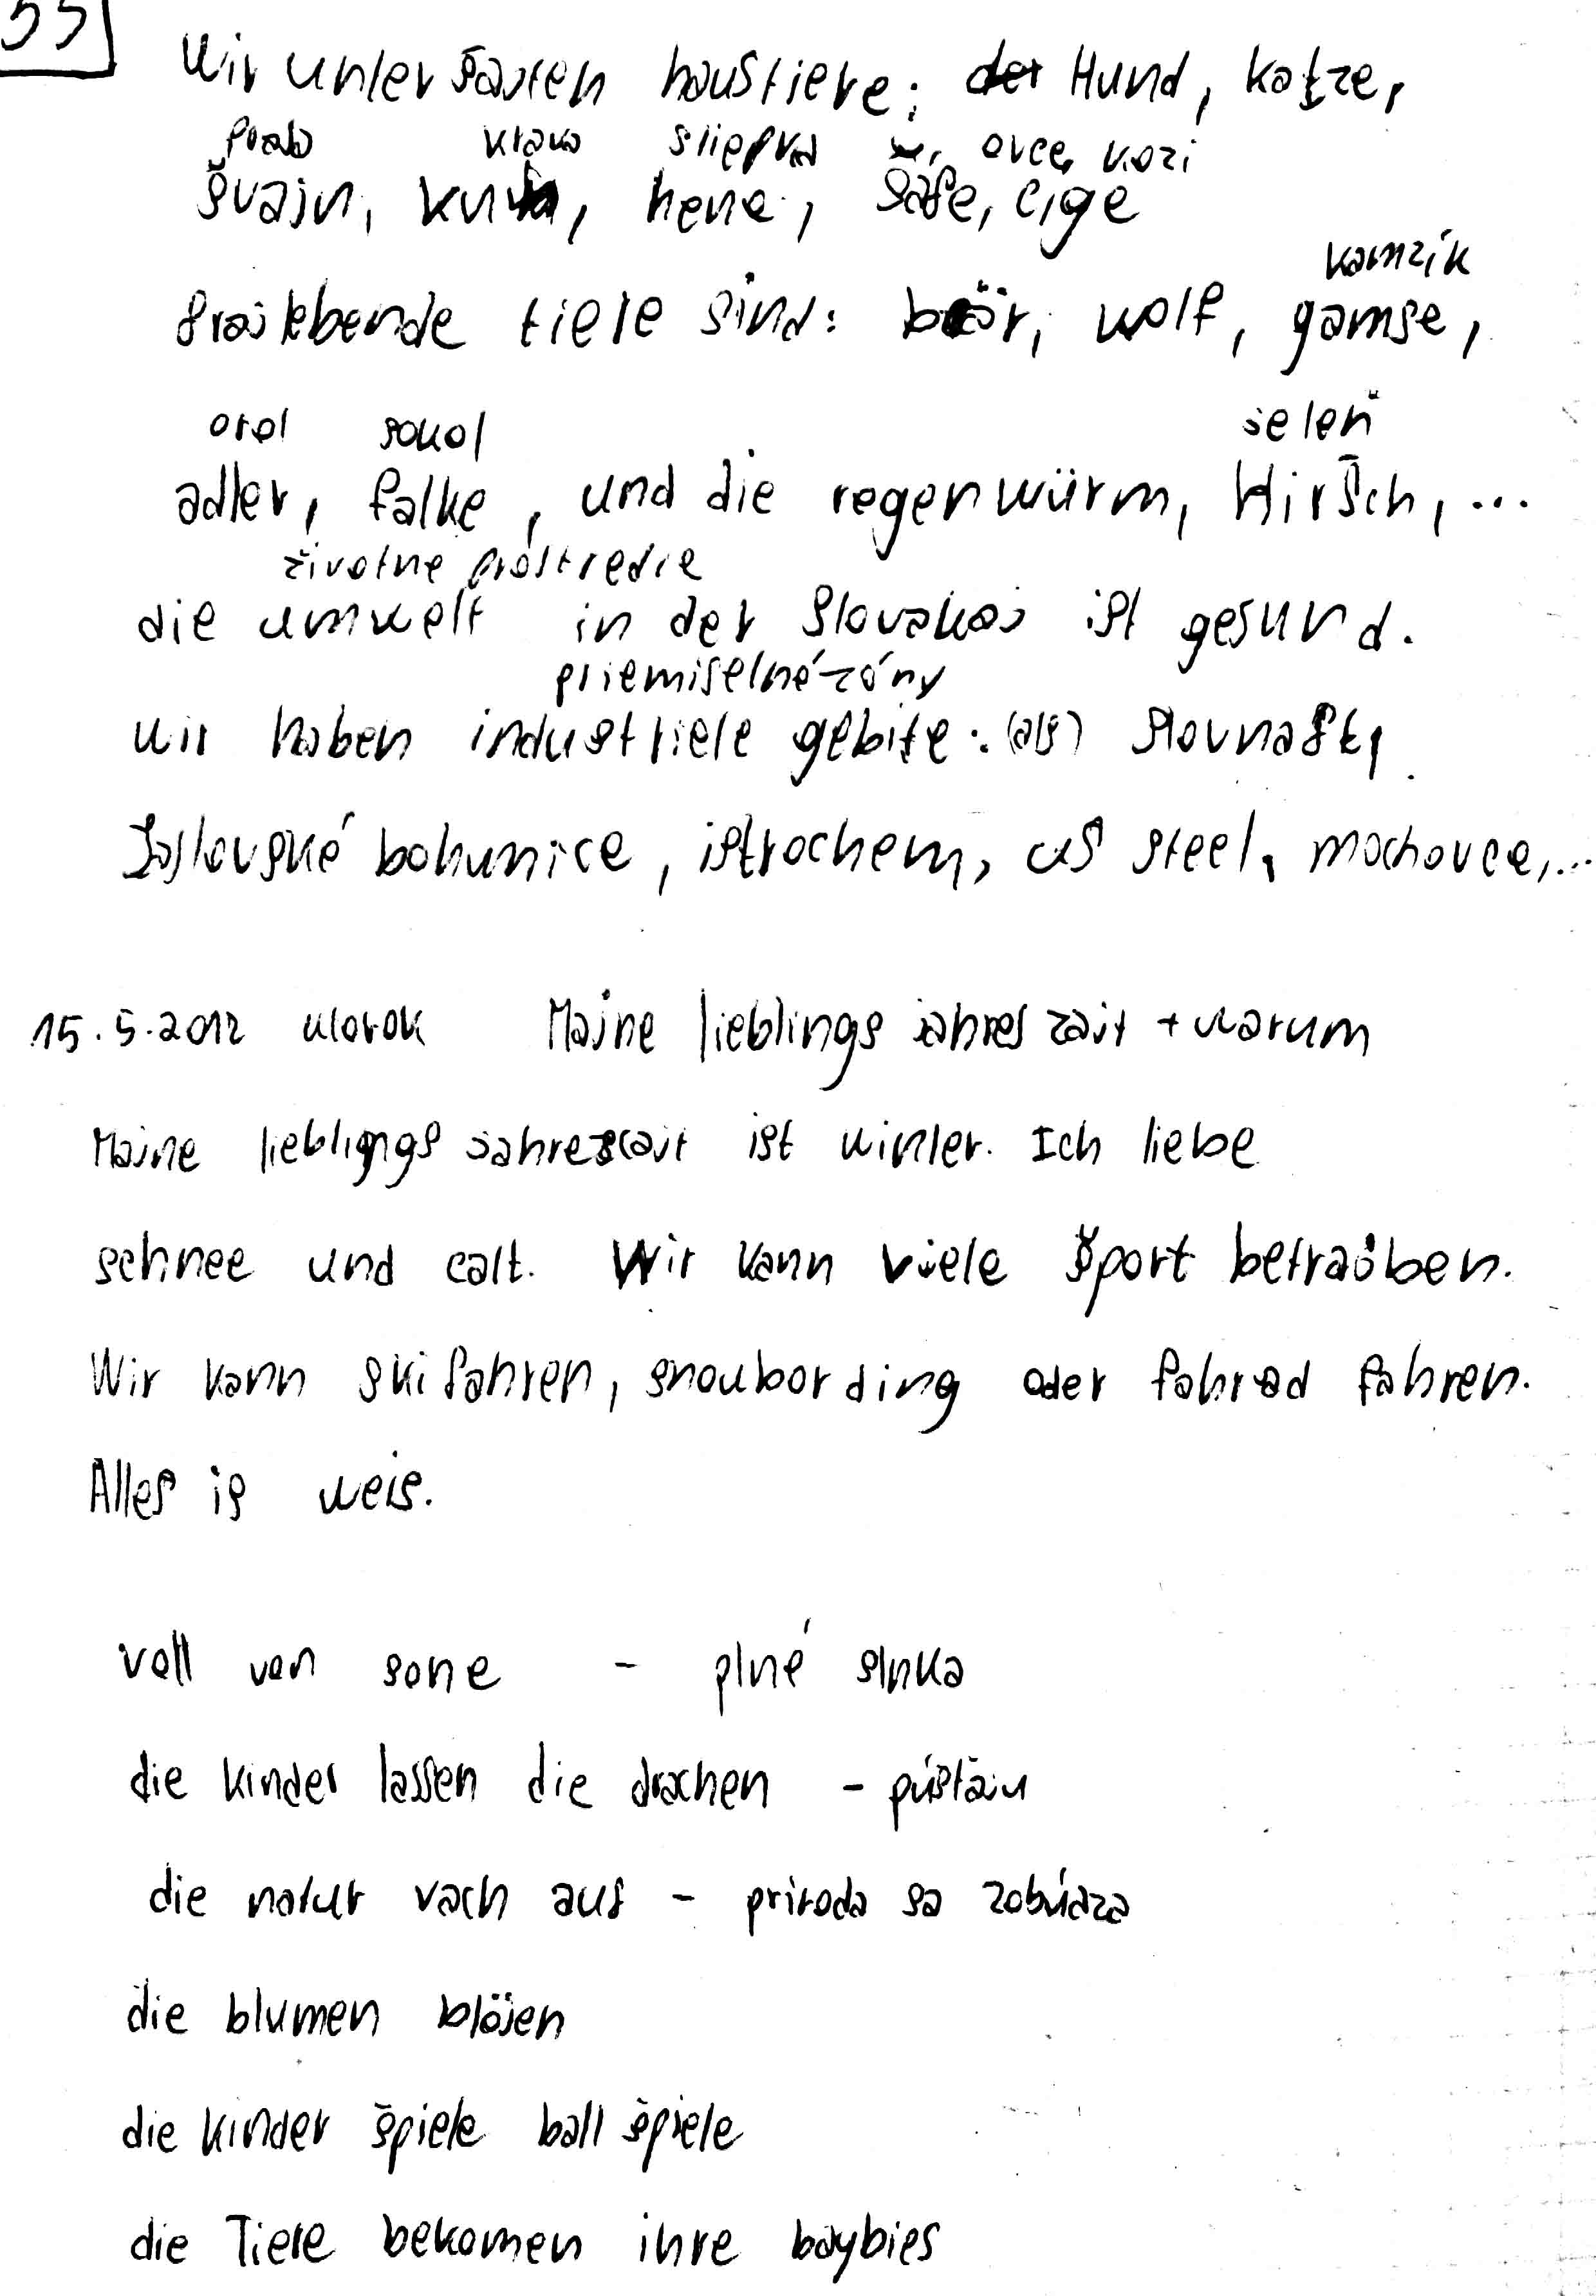 55
Wir unteršajten haustiere; der Hund, katze,
prab krava sliepka ovce, kozi
švajn, kuh, hene, šáfe, cige
kamzík
frajlebende tiere sind: bär, wolf, gamse,
orol sokol jeleň
adler, falke, und die regenwürm, Hiršch, ...
životne prostredie
die umwelt in der Slovakaj ist gesund.
priemiselné zóny
wir haben industriele gebite: (als) Slovnaft,
Jaslovské bohunice, istrochem, us steel, mochovce,...
15.5.2012 utorok Majne lieblings jahres zajt + warum
Majne lieblings jahreszajt ist winter. Ich liebe
schnee und calt. Wir kann viele šport betrajben.
Wir kann skifahren, snoubording oder fahrad fahren.
Alles is weis.
voll von sone - plné slnka
die kinder lassen die drachen - púštaju
die natur vach auf - priroda sa zobúdza
die blumen blöjen
die kinder špiele ball špiele
die Tiere bekomen ihre baybies